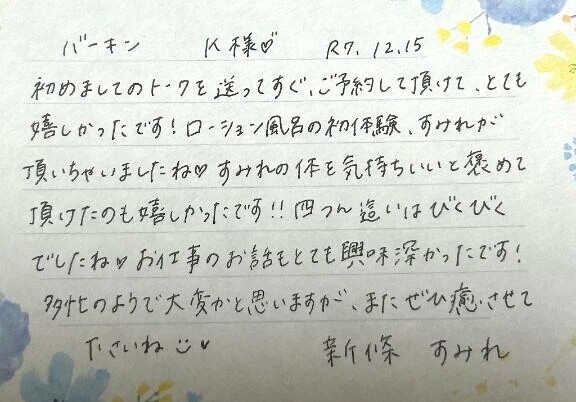 バーキン K様♡ R7.12.15
初めましてのトークを送ってすぐ、ご予約して頂けて、とても
嬉しかったです！ローション風呂の初体験、すみれが
頂いちゃいましたね♡すみれの体を気持ちいいと褒めて
頂けたのも嬉しかったです!!四つん這いはびくびく
でしたね♡お仕事のお話もとても興味深かったです！
多忙のようで大変かと思いますが、またぜひ癒させて
ださいね☺♥ 新條 すみれ